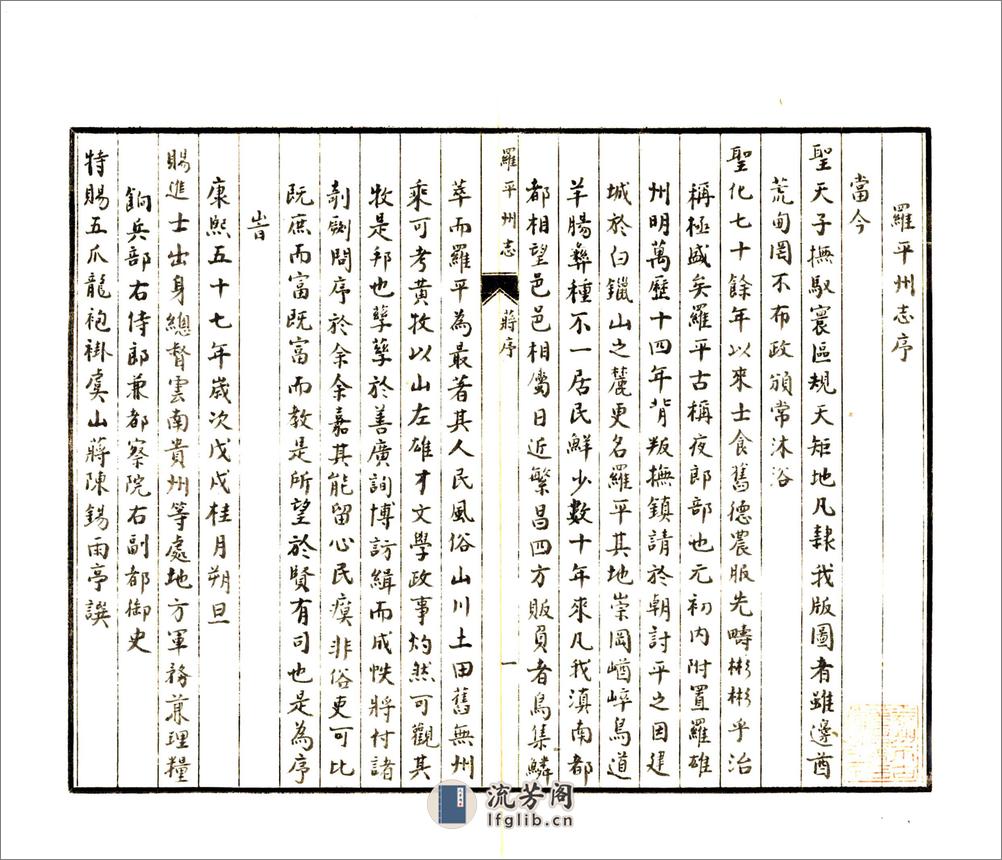 羅平州志序
當今
聖天子撫馭寰區規天矩地凡隸我版圖者雖邊酋
荒甸罔不布政頒常沐浴
聖化七十餘年以來士食舊德農服先疇彬彬乎治
稱極盛矣羅平古稱夜郎部也元初內附置羅雄
州明萬歷十四年背叛撫鎮請於朝討平之因建
城於白鑞山之麓更名羅平其地崇岡崷崪鳥道
羊腸彝種不一居民鮮少數十年來凡我滇南都
都相望邑邑相屬日近繁昌四方販負者鳥集鱗
羅平州志
蔣序
一
萃而羅平為最著其人民風俗山川土田舊無州
乘可考黃牧以山左雄才文學政事灼然可觀其
牧是邦也孳孳於善廣詢博訪緝而成帙將付諸
剞劂問序於余余嘉其能留心民瘼非俗吏可比
既庶而富既富而教是所望於賢有司也是為序
旹
康熙五十七年歲次戊戌桂月朔旦
賜進士出身總督雲南貴州等處地方軍務兼理糧
餉兵部右侍郎兼都察院右副都御史
特賜五爪龍袍褂虞山蔣陳錫雨亭譔
流芳阁
lfglib.cn